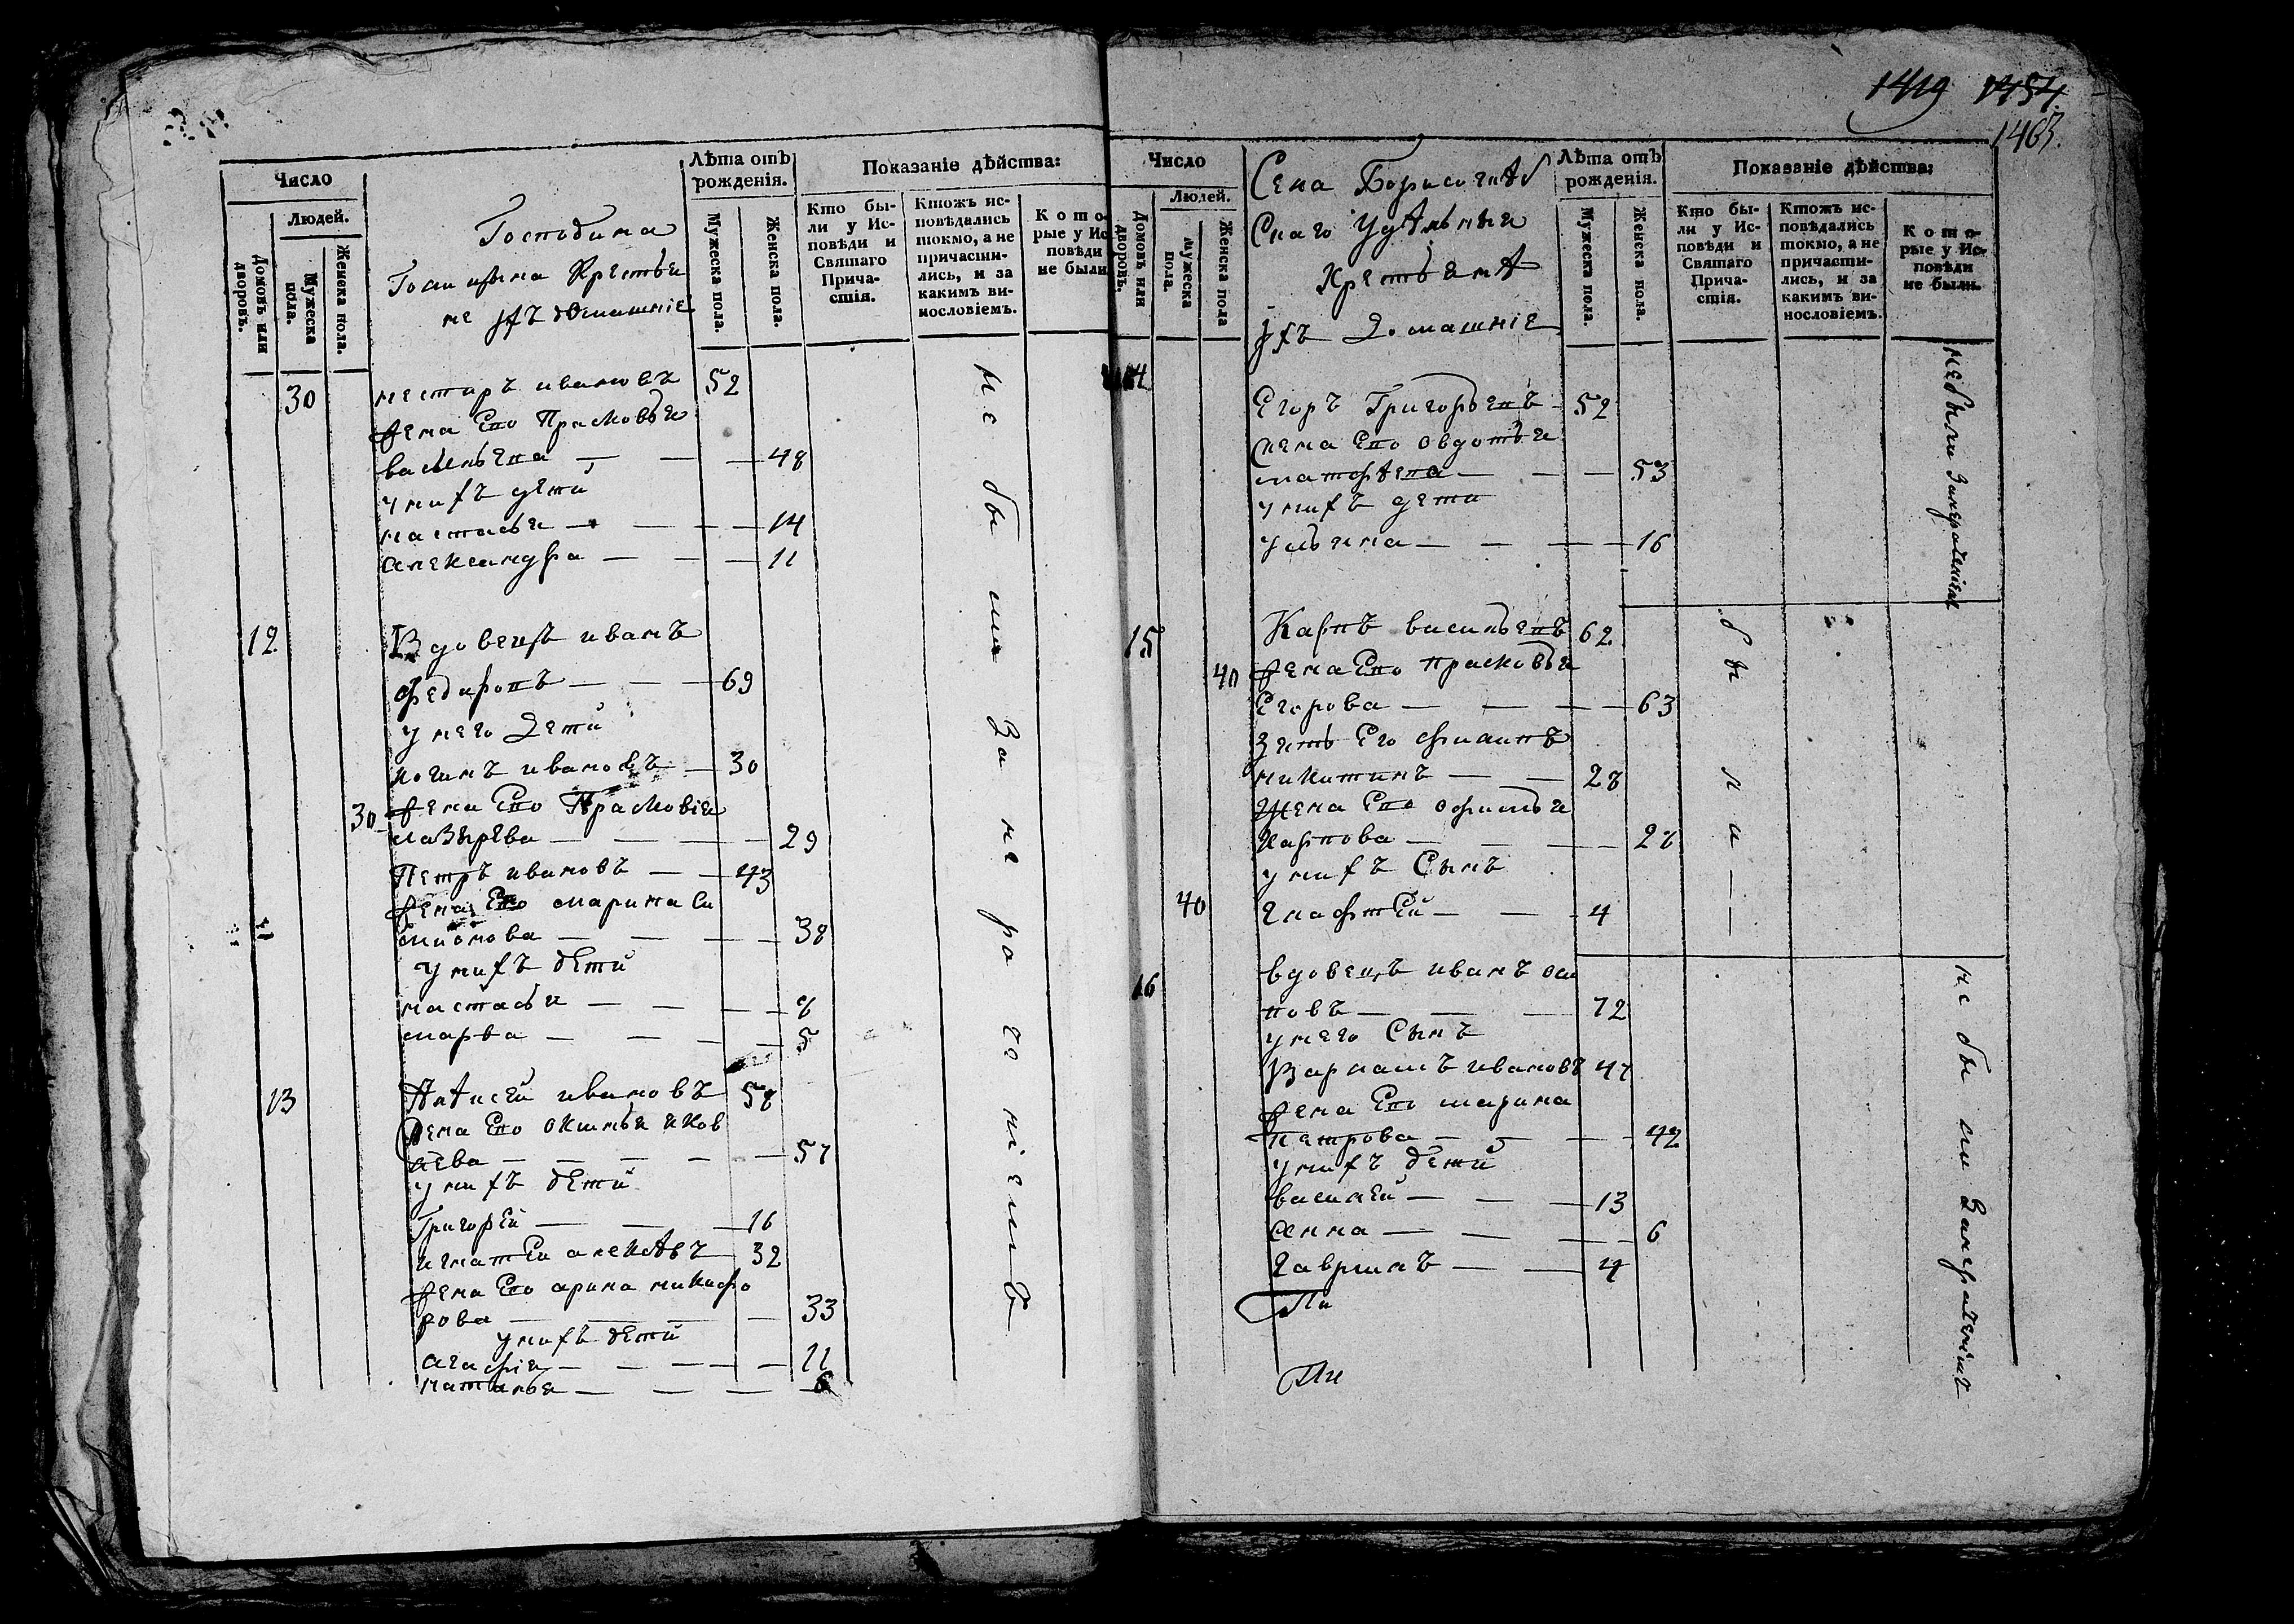 Число
Людей.
Домовъ или дворовъ.
Мужеска пола.
Женска пола.
Господина
Крестья
не ихъ домашніе
Лѣта отъ рожденія.
Мужеска пола.
Женска пола.
Показаніе дѣйства:
Кто бы-
ли у Ис-
повѣди и
Святаго
Прича-
стія.
Ктожъ ис-
повѣдались
токмо, а не
причасти-
лись, и за
какимъ ви-
нословіемъ.
Кото-
рые у Ис
повѣди
не были
30 нестиръ ивановъ 52
жена Его Прасковья
васильева — — — 48
у нихъ дети
настасья — — — 14
александра — — — 11
12 Вдовецъ иванъ
федировъ — — — 69
у него Дети
логинъ ивановъ — 30
30 жена Его Прасковія
лазырева — — — 29
Петръ ивановъ — — 43
жена Его марина си
мионова — — — 38
у нихъ дети
настасья — — — 8
марва — — — 5
13 Алисей ивановъ 58
жена Его окинья яков
лева — — — — 57
у нихъ дети
Григорей — — — 16
игнатей алекѣвъ — 32
жена Его арина никифо
рова — — — 33
у нихъ дети
агафія — — — — 11
наталья — — — — 6
не были за нераченіемъ
1419 1454
1463.
Число
Людей.
Домовъ или дворовъ.
Мужеска пола.
Женска пола
Села Борисоглѣб
Скаго Удѣльныя
Крестьянѣ
ихъ Домашніе
Лѣта отъ рожденія.
Мужеска пола.
Женска пола.
Показаніе дѣйства:
Кто бы-
ли у Ис-
повѣди и
Святаго
Прича-
стія.
Ктожъ ис-
повѣдались
токмо, а не
причасти-
лись, и за
какимъ ви-
нословіемъ.
Кото-
рые у Ис-
повѣди
не были.
14 Егоръ Григорьевъ 52
жена Его овдотья
матфѣева — — — 53
у нихъ дети
ульяна — — — — 16
небыли Занераченіем
15 Карпъ васильевъ 62
40 жена Его прасковья
Егорова — — — 63
Зять Его филипъ
никитинъ — — 28
Жена Его офимья
Карпова — — — 27
у нихъ Сынъ
40 Глафтей — — 4
были — —
16 вдовецъ иванъ оси
повъ — — — 72
у него Сынъ
Варламъ ивановъ 47
жена Его марина
петрова — — — 42
у нихъ дети
василей — — — 13
анна — — — — 6
Гаврилъ — — — 4
не были Занераченіемъ
Пи
Пи